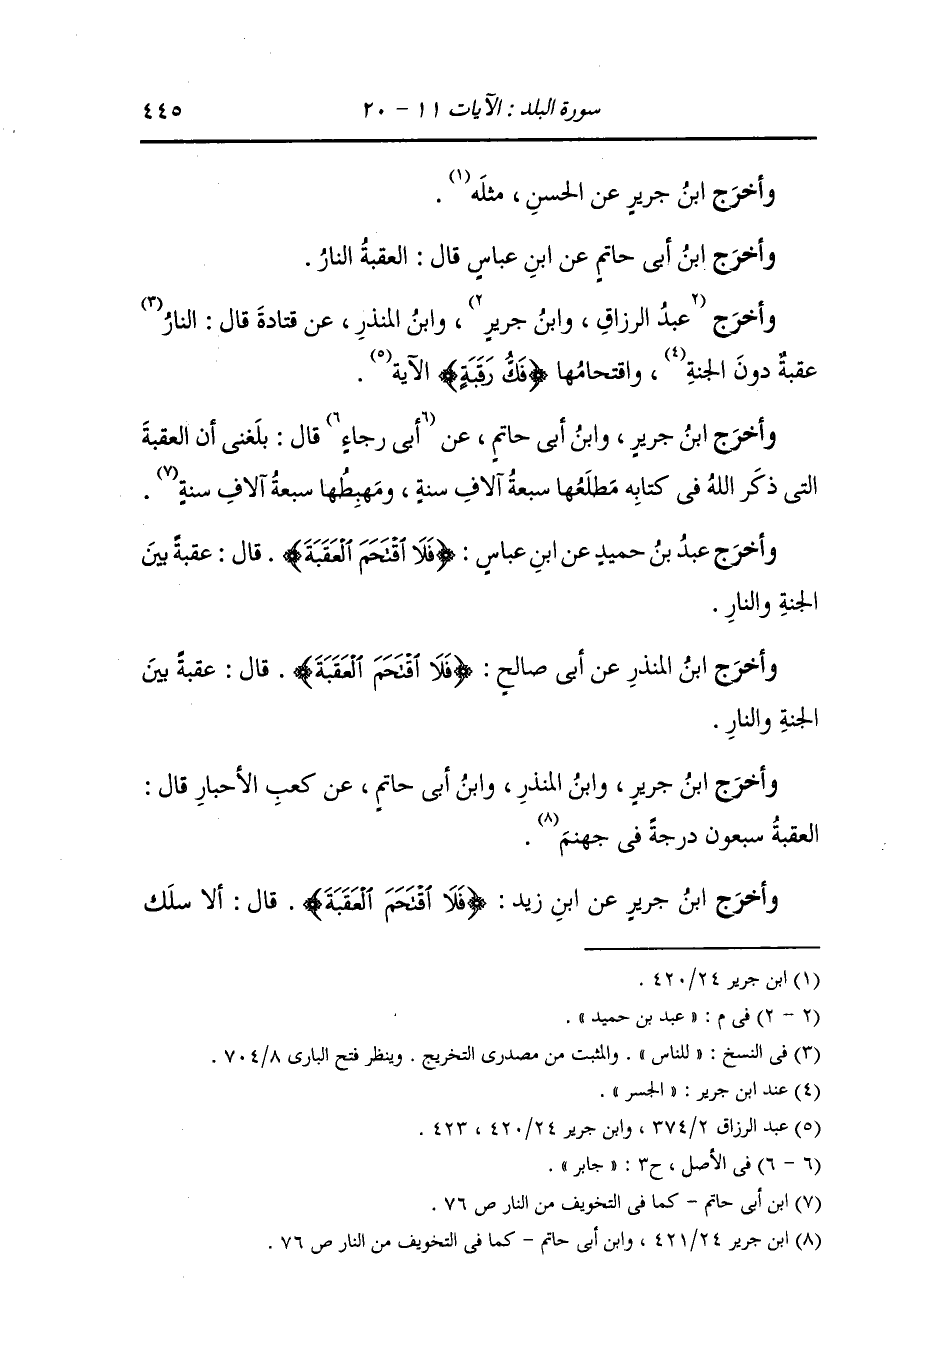 سورة البلد : الآيات ١١ - ٢٠ ٤٤٥
وأخرَج ابنُ جريرٍ عن الحسنِ ، مثلَه(١) .
وأخرَج ابنُ أبى حاتمٍ عن ابنِ عباسٍ قال : العقبةُ النارُ .
وأخرَج (٢عبدُ الرزاقِ ، وابنُ جريرٍ٢) ، وابنُ المنذرِ ، عن قتادةَ قال : النارُ(٣)
عقبةٌ دونَ الجنةِ(٤) ، واقتحامُها ﴿فَكُّ رَقَبَةٍ﴾ الآية(٥) .
وأخرَج ابنُ جريرٍ ، وابنُ أبى حاتمٍ ، عن (٦أبى رجاءٍ٦) قال : بلَغنى أن العقبةَ
التى ذكَر اللهُ فى كتابِه مَطلَعُها سبعةُ آلافِ سنةٍ ، ومَهبِطُها سبعةُ آلافِ سنةٍ(٧) .
وأخرَج عبدُ بنُ حميدٍ عن ابنِ عباسٍ : ﴿فَلَا ٱقْتَحَمَ ٱلْعَقَبَةَ﴾ . قال : عقبةً بينَ
الجنةِ والنارِ .
وأخرَج ابنُ المنذرِ عن أبى صالحٍ : ﴿فَلَا ٱقْتَحَمَ ٱلْعَقَبَةَ﴾ . قال : عقبةً بينَ
الجنةِ والنارِ .
وأخرَج ابنُ جريرٍ ، وابنُ المنذرِ ، وابنُ أبى حاتمٍ ، عن كعبِ الأحبارِ قال :
العقبةُ سبعون درجةً فى جهنمَ(٨) .
وأخرَج ابنُ جريرٍ عن ابنِ زيد : ﴿فَلَا ٱقْتَحَمَ ٱلْعَقَبَةَ﴾ . قال : ألا سلَك
(١) ابن جرير ٤٢٠/٢٤ .
(٢ - ٢) فى م : « عبد بن حميد » .
(٣) فى النسخ : « للناس » . والمثبت من مصدرى التخريج . وينظر فتح البارى ٧٠٤/٨ .
(٤) عند ابن جرير : « الجسر » .
(٥) عبد الرزاق ٣٧٤/٢ ، وابن جرير ٤٢٠/٢٤ ، ٤٢٣ .
(٦ - ٦) فى الأصل ، ح٣ : « جابر » .
(٧) ابن أبى حاتم - كما فى التخويف من النار ص ٧٦ .
(٨) ابن جرير ٤٢١/٢٤ ، وابن أبى حاتم - كما فى التخويف من النار ص ٧٦ .